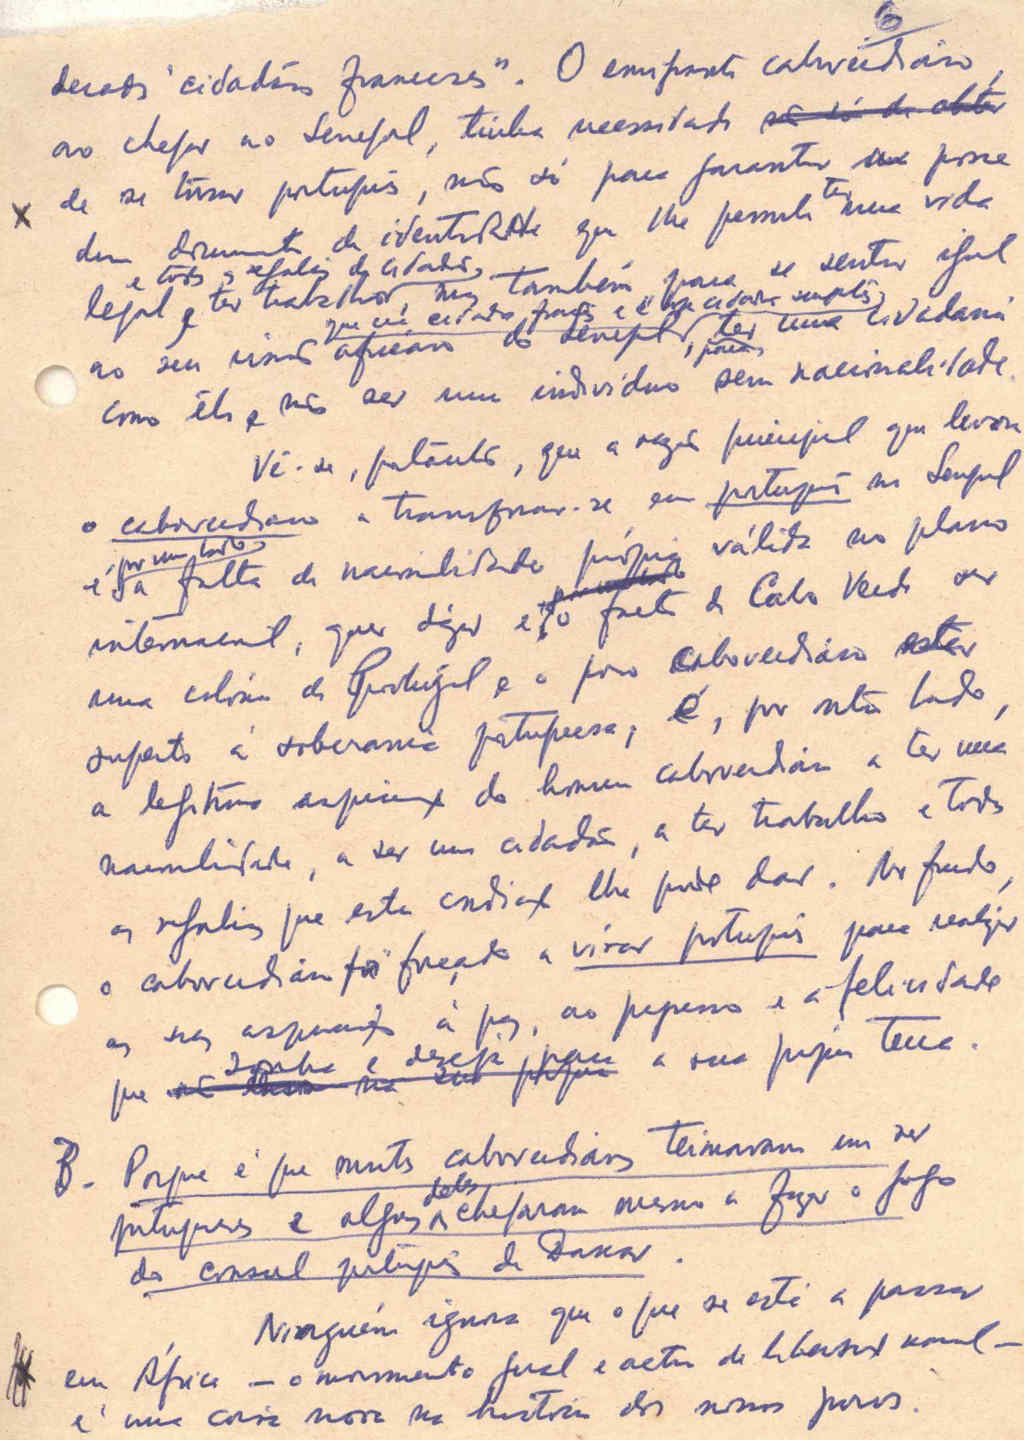 6
"cidadãos franceses". O emigrante caboverdiano,
ao chegar ao Senegal, tinha necessidade não só de obter
de se tornar português, não só para garantir sua posse
dum documento de identidade que lhe permita ter uma vida
e todas as regalias de cidadão,
legal e ter trabalho, mas também para se sentir igual
que é cidadão francês e
ao seu irmão africano do Senegal, para ter uma cidadania
como êle e não ser um indivíduo sem nacionalidade.
Vê-se, portanto, que a razão principal que levou
o caboverdiano a transformar-se em português no Senegal
por um lado
é a falta de nacionalidade própria válida no plano
internacional, quer dizer e o facto de Cabo Verde ser
uma colónia de Portugal e o povo caboverdiano estar
sujeito à soberania portuguesa; É, por outro lado,
a legítima aspiração do homem caboverdiano a ter uma
nacionalidade, a ser um cidadão, a ter trabalho e todas
as regalias que esta condição lhe pode dar. No fundo,
o caboverdiano foi forçado a virar português para realizar
as suas aspirações à paz, ao progresso e à felicidade
sonha e deseja para
que na sua própria a sua própria terra.
B. Porque é que muitos caboverdianos teimavam em ser
deles
portugueses e alguns chegaram mesmo a fazer o jogo
do consul português de Dakar.
Ninguém ignora que o que se está a passar
em África — o movimento geral e actual de libertação nacional —
é uma coisa nova na história dos nossos povos.